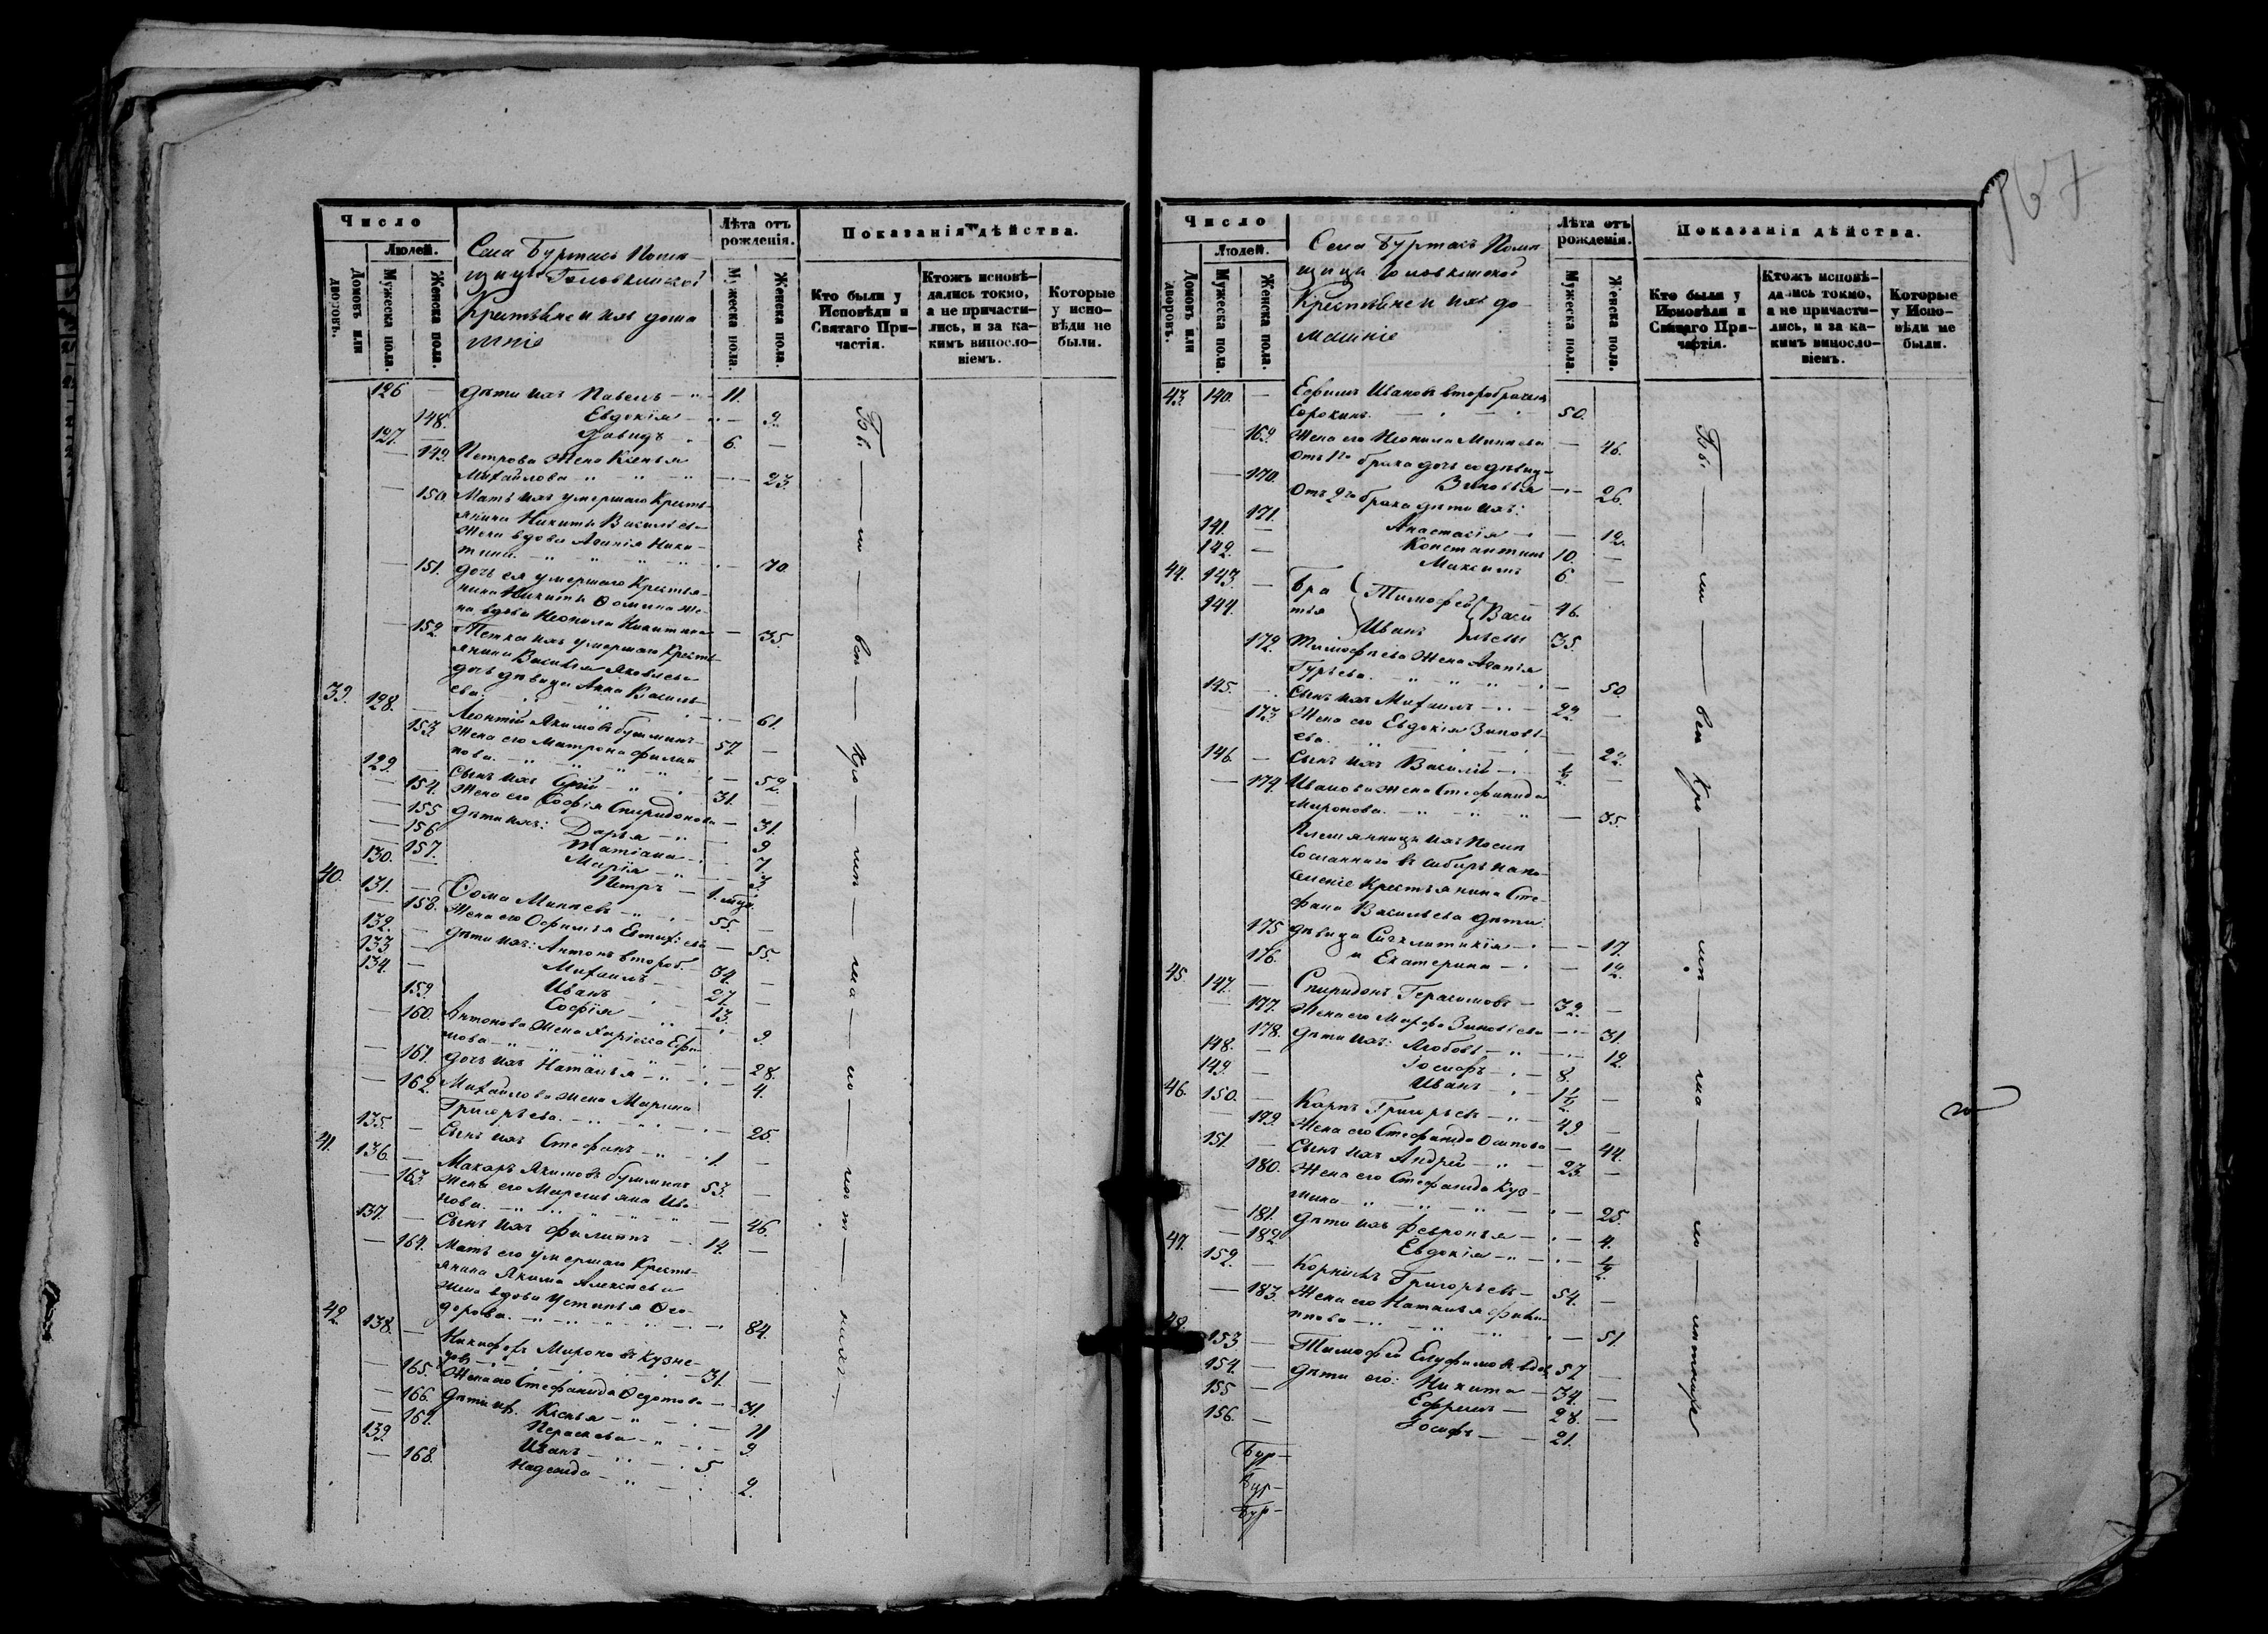 Число
Людей.
Домовъ или дворовъ.
Мужеска пола.
Женска пола.
Села Буртасъ Поме-
щицы Головкинской
Крестьяне и ихъ дома
шніе
Лѣта отъ рожденія.
Мужеска пола.
Женска пола.
Показанія дѣйства.
Кто были у Исповѣди и Святаго При-частія.
Ктожъ исповѣ-дались токмо, а не причасти-лись, и за ка-кимъ винословіемъ.
Которые у испо-вѣди не были.
126 — дѣти ихъ Павелъ — 11.
148. Евдокія — 9.
127. — Давидъ — 6. —
— 149. Петрова жена Ксенья
Михайлова — 23.
— 150. Мать ихъ умершаго Кресть-
янина Никиты Васильева
жена вдова Агапія Ники-
тина. — 70.
— 151. дочь ея умершаго Крестья-
нина Никиты Ѳомина же-
на вдова Неонила Никитина — 35.
— 152. Тетка ихъ умершаго Кресть-
янина Василья Яковлева
дочь дѣвица Анна Василь-
ева. — 61.
39. 128. — Леонтій Якимовъ 57. —
153. Жена его Матрона Филип
пова. — 52.
129. — Сынъ ихъ — 31. —
— 154. Жена его Софія Спиридонова — 31.
— 155 дѣти ихъ: Дарья — 9
— 156 Татіана — 7.
— 157. Марія — 3.
130. — Петръ — 1. мѣся.
40. 131. — Ѳома Минаевъ — 55. —
— 158. Жена его Евфимія — 55.
132. — дѣти ихъ: Антонъ второб. 34. —
133 — Михаилъ — 27. —
134. — Иванъ — 13.
159. Софія — 9.
— 160. Антонова жена Ефи
мова — 28.
— 161. дочь ихъ Наталья — 4.
— 162. Михайлова жена Марина
Григорьева. — 25.
135. — Сынъ ихъ Стефанъ — 1. —
41. 136. — Макаръ Якимовъ 53. —
— 163 Жена его Марешьяна Ива-
нова. — 46.
137. — Сынъ ихъ Филиппъ — 14. —
— 164. Мать его умершаго Кресть-
янина Якима Алексѣева
жена вдова Устинья Ѳео-
дорова. — 84.
42 138. — Никифоръ Мироновъ Кузне-
цовъ — 31. —
— 165. Жена его Стефанида Ѳедотова — 31.
— 166. дѣти их. Ксенья — 11
— 167. Параскева — 9
139. Иванъ — 5
— 168. Надежда — 2.
Бы — ли — вси — Кро — мѣ — ма — ло — лѣт — нихъ —
Число
Людей.
Домовъ или дворовъ.
Мужеска пола.
Женска пола.
Села Буртасъ Поме-
щицы Головкинской
Крестьяне и ихъ до-
машніе
Лѣта отъ рожденія.
Мужеска пола.
Женска пола.
Показанія дѣйства.
Кто были у Исповѣди и Святаго При-частія.
Ктожъ исповѣ-дались токмо, а не причасти-лись, и за ка-кимъ винословіемъ.
Которые у Испо-вѣди не были.
43. 140. — Ефимъ Ивановъ второбрачный
Сорокинъ. — 50.
— 169. Жена его Неонила Минаева — 46.
Отъ 1го брака дочь его дѣвиц-
— 170. Зиновья — 26.
Отъ 2го брака дѣти ихъ:
171. Анастасія — 12.
141. — Константинъ 10. —
142. — Максимъ 6 —
44. 143. — Бра Тимофей Васи 46.
144. тья Иванъ льевы 35.
172. Тимофеева жена Агапія
Гурьева. — 50.
145. — Сынъ ихъ Михаилъ — 22. —
— 173 Жена его Евдокія Зиновь-
ева. — 22.
146. — Сынъ ихъ Василій — 1/2. —
— 174. Иванова жена Стефанида
Миронова. — 35.
Племянницы ихъ
Сосланнаго въ Сибирь на по-
селеніе Крестьянина Сте-
фана Васильева дѣти:
175 дѣвица Сигклитикія — 17.
176. и Екатерина — 12.
45. 147. — Спиридонъ Герасимовъ — 32. —
— 177. Жена его Марфа Зиновіева — 31.
178. дѣти ихъ: Любовь — 12.
148. — Іосифъ — 8.
149. — Иванъ — 1 1/2. —
46. 150. — Карпъ Григорьевъ — 49. —
— 179. Жена его Стефанида Осипова — 44.
151. — Сынъ ихъ Андрей — 23. —
180. Жена его Стефанида Куз-
мина — 25.
— 181. дѣти ихъ Февронья — 4.
— 182. Евдокія — 1/2.
47. 152. — Корнилъ Григорьевъ — 54. —
— 183. Жена его Наталья Фили-
ппова — 51.
48. 153 — Тимофей вдов. 57 —
154. — дѣти его: Никита — 34. —
155 — Ефремъ — 28. —
156. — Іосифъ — 21.
Бы — ли — вси Кро — мѣ — ма — ло — лѣтнихъ
Бур-
Бур-
Бур-